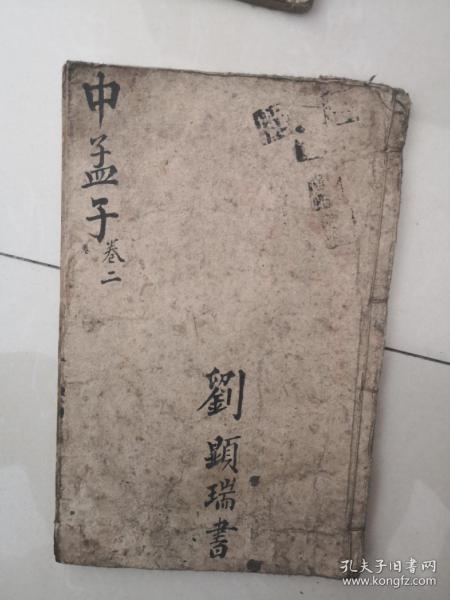 中孟子
卷二
劉顯瑞書
孔夫子旧书网
www.kongfz.com